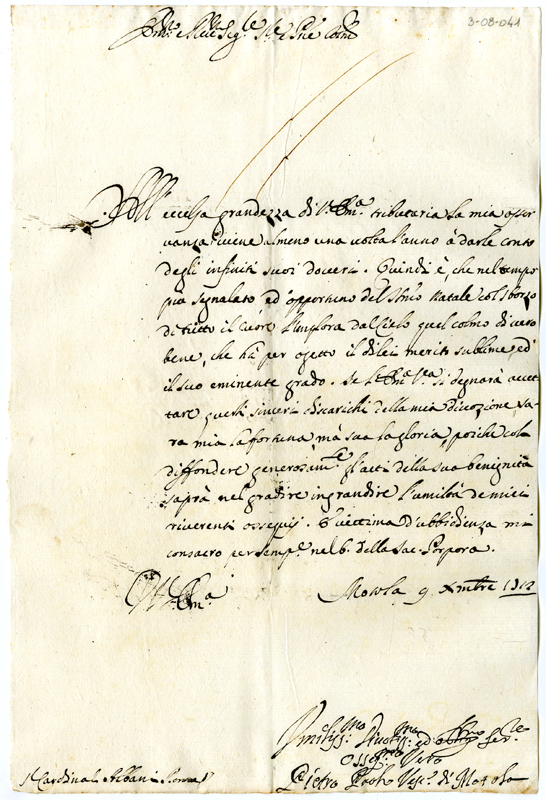 3-08-041
Em.mo e R.mo Sig.re Sig.re e P.rone Col.mo
All' eccelsa grandezza di V. Em.a tributaria la mia osser
vanza viene almeno una volta l'anno à darle conto
degli infiniti suoi doveri. Quindi è che nel tempo
più segnalato ed' opportuno del S.mo Natale col sborzo
di tutto il Cuore l'implora dal Cielo quel colmo di vero
bene, che hà per ogetto il di lei merito sublime, ed'
il suo eminente grado. Se l'Em.a V.a si degnarà accet
tare questi sinceri discarichi della mia divozione, sa-
ra mia la fortuna, mà sua la gloria, poiche col
diffondere generosam.te gl'atti della sua benignità
saprà nel gradire ingrandire l'umiltà de miei
riverenti ossequij. E vittima d'ubbidienza mi
consacro per semp.e nel b. della Sac. Porpora.
V. Em.a
Motola 9. Xmbre 1712
Umiliss.mo Divotiss.mo ed Obb.mo Ser.re
Osseq.mo Vero
S.r Cardinal Albani Roma
Pietro Paolo Vesc.o di Motola